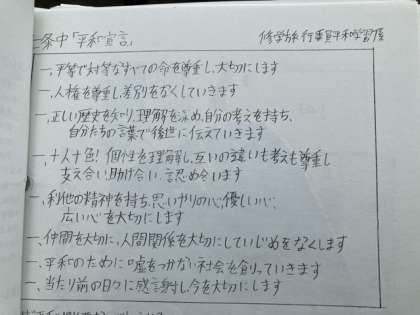 二条中「平和宣言」 修学旅行事前平和学習展
一、平等で対等なすべての命を尊重し、大切にします
一、人権を尊重し、差別をなくしていきます
一、正しい歴史を知り、理解を深め、自分の考えを持ち、
自分たちの言葉で後世に伝えていきます
一、十人十色!個性を理解し、互いの違いも考えも尊重し
支え合い、助け合い、認め合います
一、利他の精神を持ち、思いやりの心、優しい心、
広い心を大切にします
一、仲間を大切に、人間関係を大切にしていじめをなくします
一、平和のために嘘をつかない社会を創っていきます
一、当たり前の日々に感謝し、今を大切にします